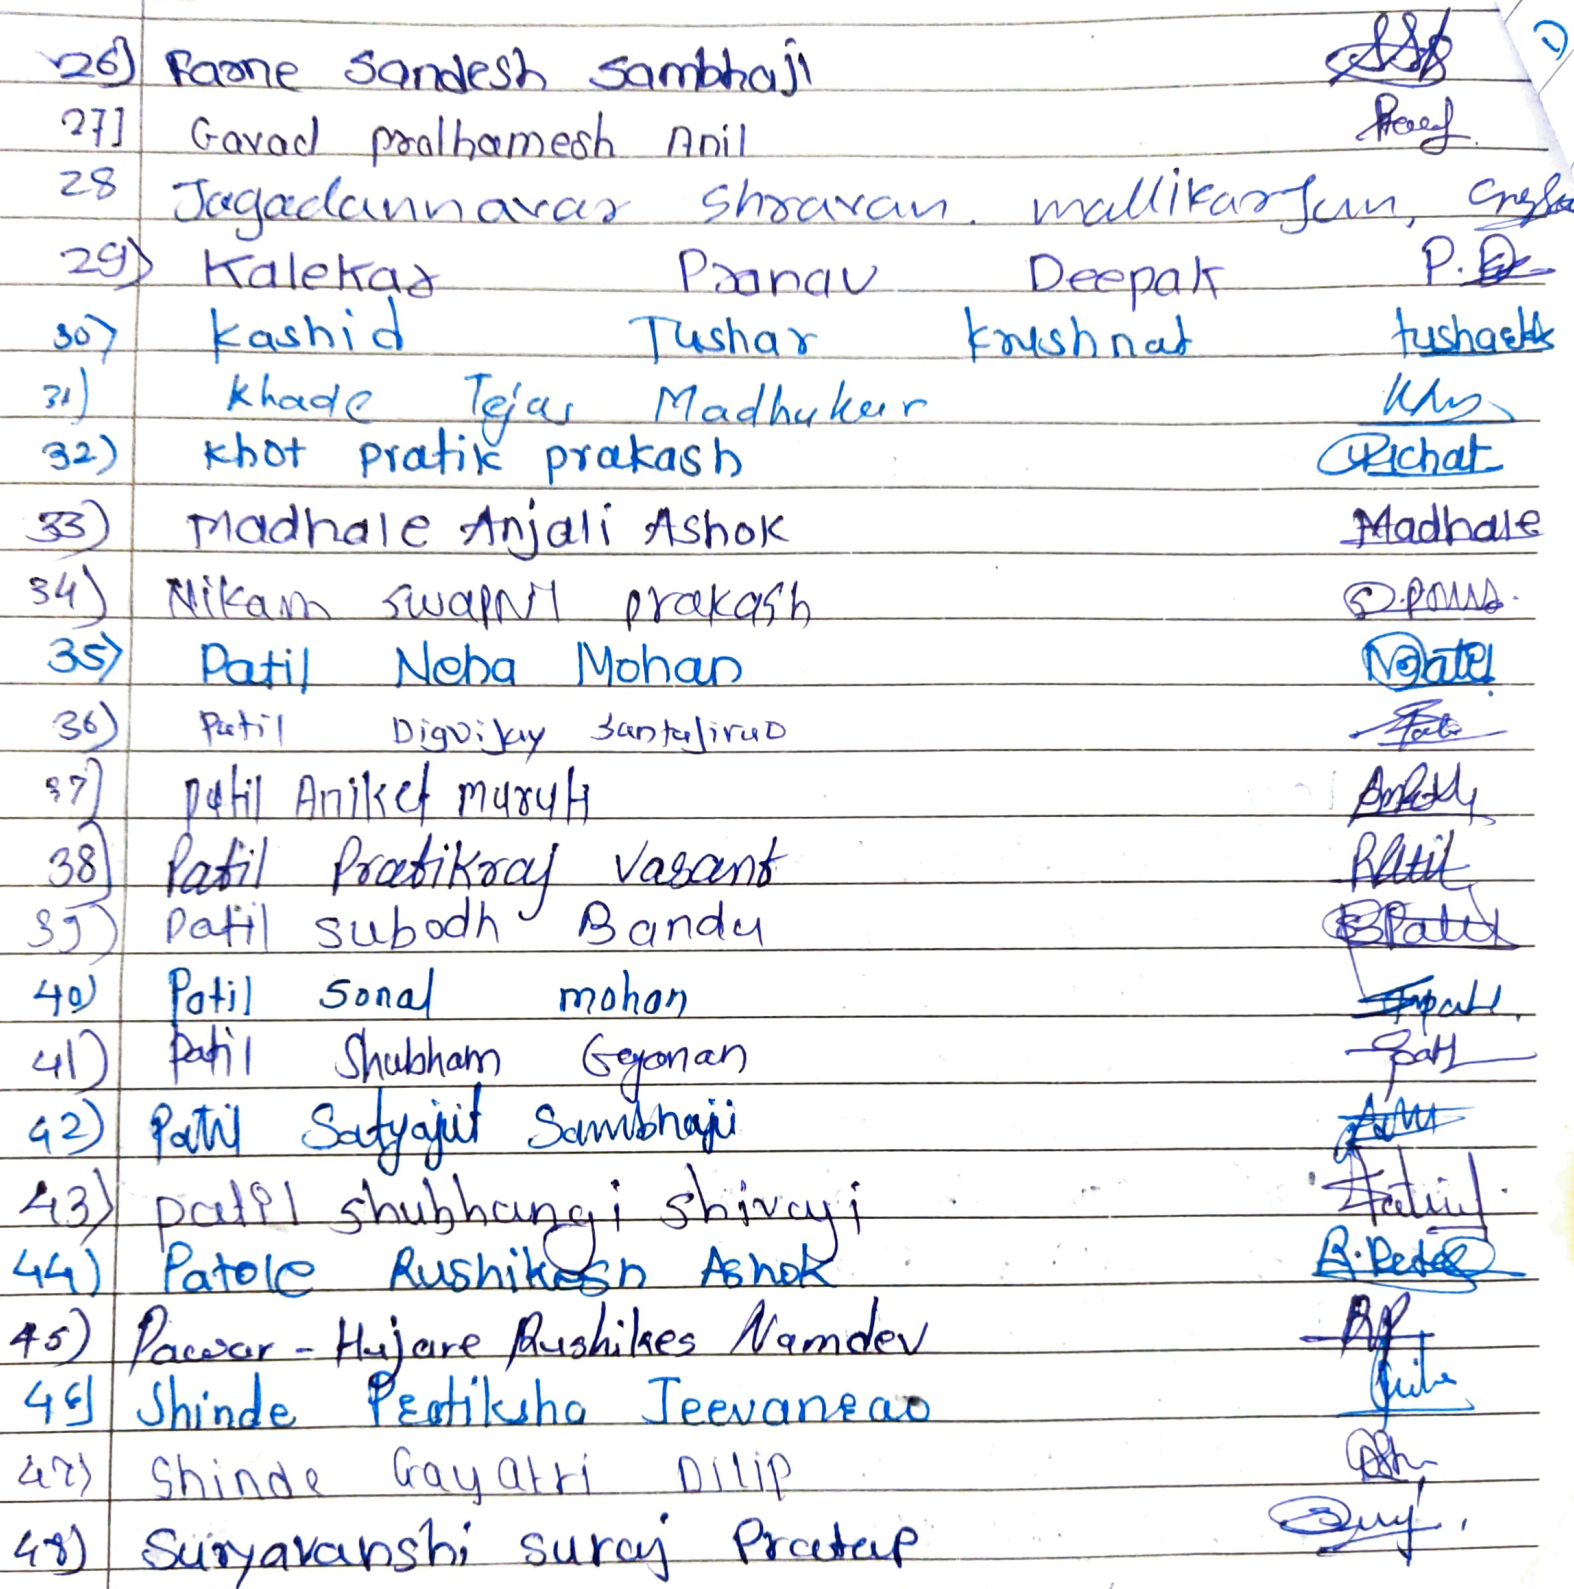 26) Farne Sandesh Sambhaji
27] Gavad Prathamesh Anil
28 Jagadannavar Shravan. mallikarjun,
29) Kalekar Pranav Deepak P.D
30) Kashid Tushar Krushnat tusharkk
31) Khade Tejas Madhukar
32) Khot Pratik prakash
33) Madhale Anjali Ashok Madhale
34) Nikam swapnil prakash
35) Patil Neha Mohan
36) Patil Digvijay Santajirao
37) patil Aniket maruti
38) Patil Pratikraj Vasant
39) Patil subodh Bandu BPatil
40) Patil Sonal mohan
41) Patil Shubham Gajanan
42) Patil Satyajit Sambhaji
43) patil shubhangi shivaji
44) Patole Rushikesh Ashok
45) Pawar - Hujare Rushikes Namdev RP
46) Shinde Pratiksha Jeevanrao
47) Shinde Gayatri Dilip
48) Suryavanshi suraj Pratap